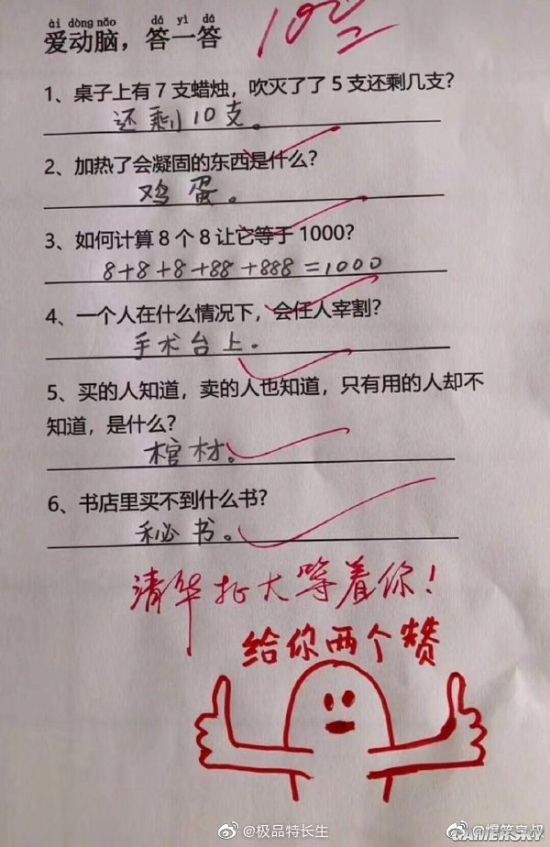 ài dòng nǎo dá yì dá
爱动脑，答一答
100
1、桌子上有 7 支蜡烛，吹灭了了 5 支还剩几支？
还剩10支。
2、加热了会凝固的东西是什么？
鸡蛋。
3、如何计算 8 个 8 让它等于 1000？
8+8+8+88+888=1000
4、一个人在什么情况下，会任人宰割？
手术台上。
5、买的人知道，卖的人也知道，只有用的人却不
知道，是什么？
棺材。
6、书店里买不到什么书？
秘书。
清华北大等着你！
给你两个赞
@极品特长生
@爆笑宝叔
GAMERSKY